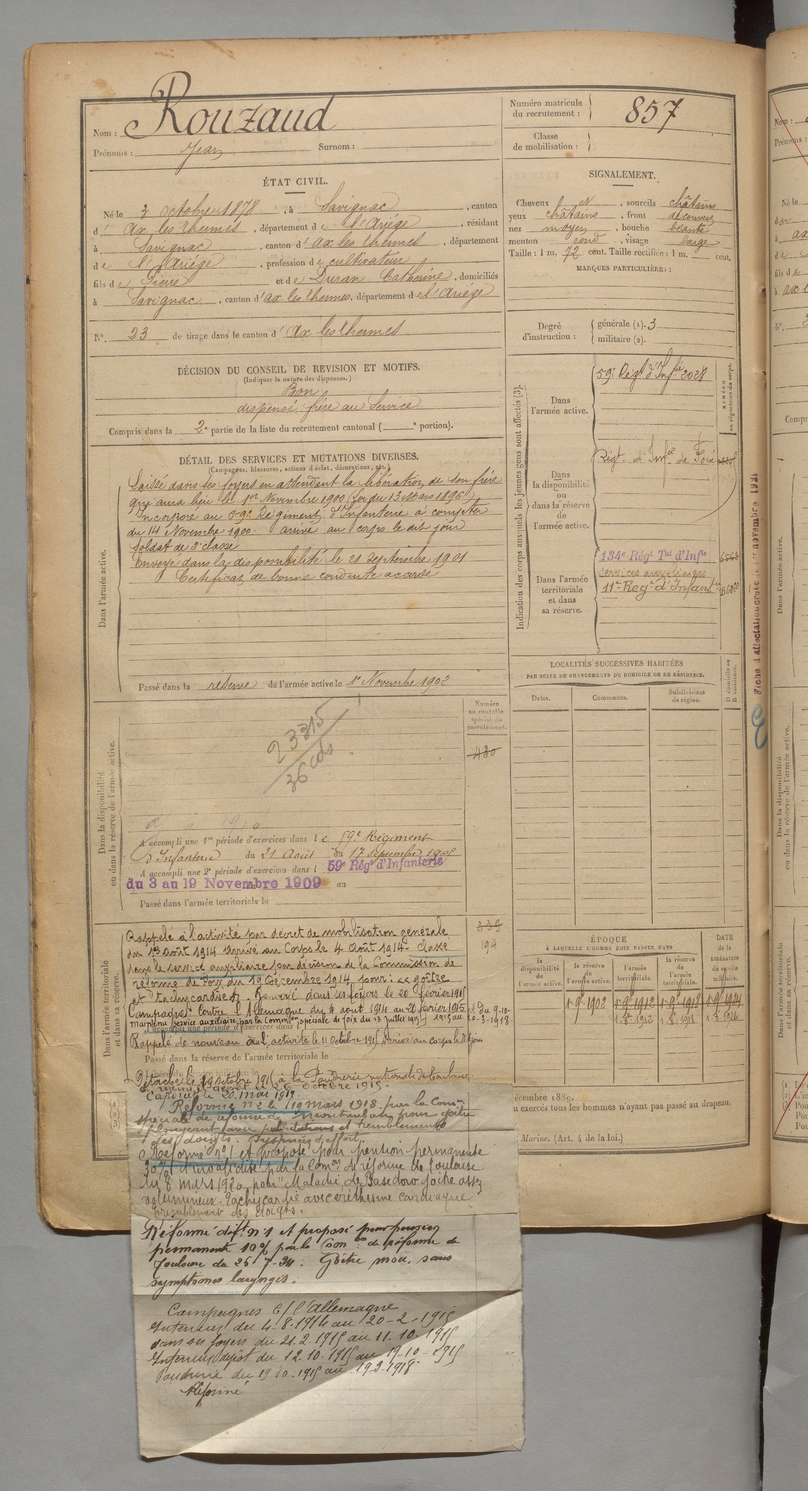 Nom : Rouzaud
Prénoms : Jean Surnom :
Numéro matricule du recrutement : 857
Classe de mobilisation :
ÉTAT CIVIL.
Né le 3 octobre 1878, à Savignac, canton
d' Ax les thermes, département de l'Ariége, résidant
à Savignac, canton d'ax les thermes, département
de l'Ariége, profession de cultivateur
fils de Pierre et de Duran Catherine, domiciliés
à Savignac, canton d'ax les thermes, département de l'Ariége
N° 23 de tirage dans le canton d'Ax les thermes
SIGNALEMENT.
Cheveux et, sourcils châtains
yeux châtains, front découvert
nez moyen, bouche
menton rond, visage large
Taille : 1 m. 72 cent. Taille rectifiée : 1 m. cent.
MARQUES PARTICULIÈRES :
Degré d'instruction : générale (1). 3
militaire (2).
DÉCISION DU CONSEIL DE REVISION ET MOTIFS.
(Indiquer la nature des dispenses.)
Bon
dispensé frère au Service
Compris dans la 2e partie de la liste du recrutement cantonal ( e portion).
DÉTAIL DES SERVICES ET MUTATIONS DIVERSES.
(Campagnes, blessures, actions d'éclat, décorations, etc.)
Dans l'armée active.
Laissé dans ses foyers en attendant la libération de son frère
qui aura lieu le 1er Novembre 1900 (Loi du 13 Mars 1896)
Incorporé au 59e Régiment d'Infanterie à compter
du 14 Novembre 1900. arrivé au corps le dit jour
Soldat de 2e classe
Envoyé dans la disponibilité le 21 Septembre 1901
Certificat de bonne conduite accordé
Passé dans la réserve de l'armée active le 1er Novembre 1902
Indication des corps auxquels les jeunes gens sont affectés (3).
Dans l'armée active.
59e Régt d'Infie
Dans la disponibilité ou dans la réserve de l'armée active.
Régt d'Infie de Foix
Dans l'armée territoriale et dans sa réserve.
134e Régt Tal d'Infie
services auxiliaires
11e Regt d'Infant
LOCALITÉS SUCCESSIVES HABITÉES
PAR SUITE DE CHANGEMENTS DE DOMICILE OU DE RÉSIDENCE.
Dates. Communes. Subdivisions de région.
Dans la disponibilité ou dans la réserve de l'armée active.
Numéro au contrôle spécial du recrutement.
430
23315
36
A accompli une 1re période d'exercices dans le 59e Régiment
d'Infanterie du 21 Août au 17 Septembre
A accompli une 2e période d'exercices dans l 59e Régt d'Infanterie
du 3 au 19 Novembre 1909 au
Passé dans l'armée territoriale le
Dans l'armée territoriale et dans sa réserve.
339
194
Rappelé à l'activité par décret de mobilisation générale
du 1er août 1914 arrivé au Corps le 4 Août 1914. Classé
dans le service auxiliaire par décision de la Commission de
réforme de Foix du 19 Décembre 1914 pour : goître
et tachycardie. Renvoyé dans ses foyers le 20 février 1915
Campagnes Contre l'Allemagne du 4 aout 1914 au 20 février 1915
maintenu service auxiliaire par la Commission spéciale de Foix du
Rappelé de nouveau à l'activité le 11 octobre 1915. Arrivé au corps le dit jour
Passé dans la réserve de l'armée territoriale le
Détaché le 19 octobre 1915 à la Poudrerie nationale de Toulouse
ÉPOQUE
À LAQUELLE L'HOMME DOIT PASSER DANS
la disponibilité de l'armée active. la réserve de l'armée active. l'armée territoriale. la réserve de l'armée territoriale.
DATE de la libération du service militaire.
Réformé n° 2 le 19 mars 1918 par la Comm
spéciale de réforme de Montauban pour goître
avec palpitations et tremblements
des doigts. Dyspnée d'effort.
Réformé n° 1 et proposé pour pension permanente
30% d'invalidité par la Comon de réforme de Toulouse
du 8 mars 1920 pour Maladie de Basedow goître assez
volumineux. Tachycardie avec éréthisme cardiaque
tremblement des doigts.
Réformé déft n° 1 et proposé pour pension
permanente 10% par la Com on de réforme de
Toulouse du 26-7-34. Goître mou, sans
symptômes laryngés.
Campagnes C/ l'Allemagne
Intérieur du 4-8-1914 au 20-2-1915
dans ses foyers du 21.2.1915 au 11.10.1915
Intérieur dépot du 12.10.1915 au 19-10-1915
Poudrerie du 19.10.1915 au 19.3.1918
Réformé